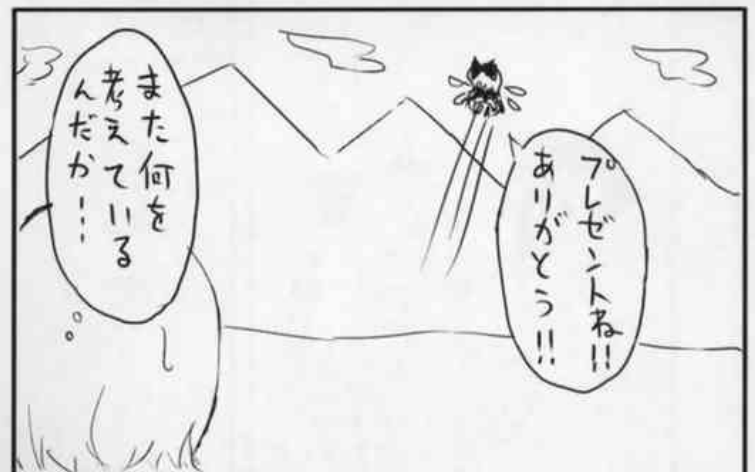 プレゼントね!!
ありがとう!!
また何を
考えている
んだか…